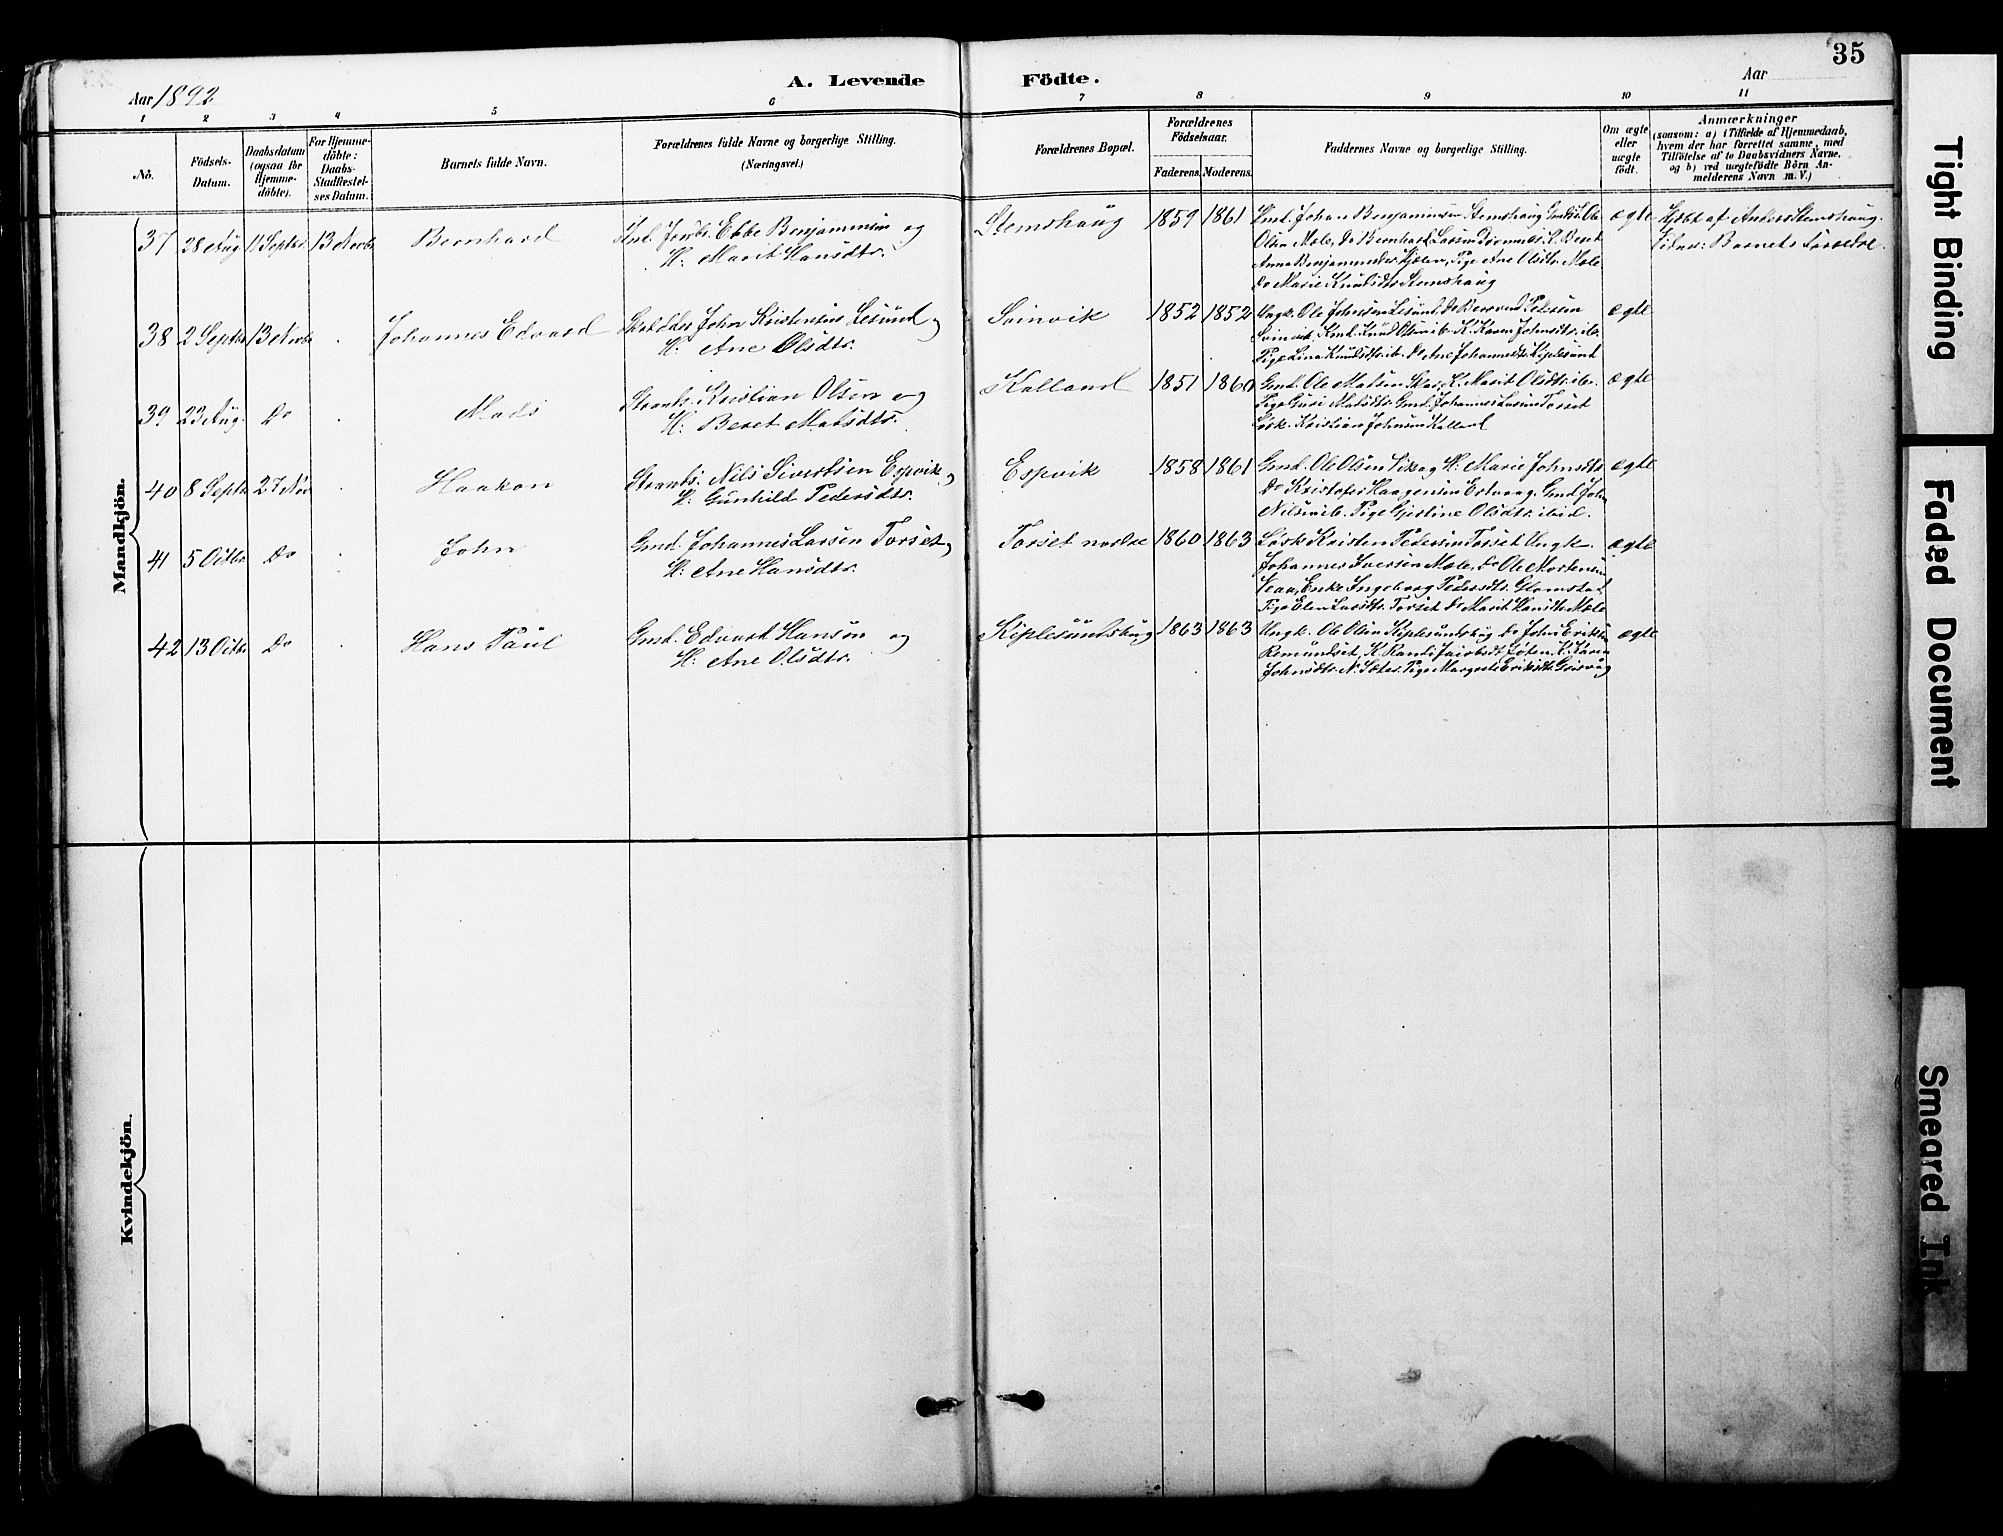 35
A. Levende Födte.
Aar 1892
Aar
1 2 3 4 5 6 7 8 9 10 11
No.
Födsels-Datum.
Daabsdatum (ogsaa for Hjemme-döbte).
For Hjemme-döbte: Daabs-Stadfæstel-ses Datum.
Barnets fulde Navn.
Forældrenes fulde Navne og borgerlige Stilling. (Næringsvei.)
Forældrenes Bopæl.
Forældrenes Födselsaar.
Faderens Moderens
Faddernes Navne og borgerlige Stilling.
Om ægte eller uægte født.
Anmærkninger
(saasom: a) i Tilfælde af Hjemmedaab,
hvem der har forrettet samme, med
Tilföielse af to Daabsvidners Navne,
og b) ved uægtefödte Börn An-
melderens Navn m. V.)
Mandkjön.
37 28 Aug 11 Septbr. 13 Novbr Bernhard
Ebbe Benjaminsen og
H. Marit Hansdtr.
Stemshaug 1859 1861
Gmd. Johan Benjaminsen Stemshaug
Olsen Mele, Do Bernhard Larsen
Pige Ane Olsdtr. Mele
Do Marie Knudsdtr Stemshaug
ægte
Hjdbt af Anders Stemshaug.
Barnets Forældre.
38 2 Septbr 13 Novbr . Johannes Edvard
John Kristensen Lesund og
H. Ane Olsdtr.
Svinvik 1852 1852
Ungk. Ole Johnsen Lesund, Do Berevnd Petersen
Svinvik, Gmd. Knud Olsen ib. K. Karen Johnsdtr. ib.
Pige Lina Knudsdtr. ib. Do Ane Johannesdtr Kiplesund
ægte
39 23 Aug. Do . Mads
Strands. Kristian Olsen og
H. Beret Matsdtr.
Kalland 1851 1860
Gmd. Ole Matsen K. Marit Olsdtr. ib.
Pige Guri Matsdtr. Gmd. Johannes Larsen Torset
Løsk. Kristian Johnsen Kalland
ægte
40 8 Septbr 27 Nov . Haakon
Strands. Nils Sivertsen Espvik og
H. Gunhild Pedersdtr.
Espvik 1858 1861
Gmd. Ole Olsen H. Marie Johnsdtr
Do Kristofer Haagensen Gmd. John
Nilsen ib. Pige Gjertine Olsdtr. ibid.
ægte
41 5 Octbr Do . John
Gmd. Johannes Larsen Torset og
H. Ane Hansdtr.
Torset nordre 1860 1863
Løsk. Kristen Pedersen Torset Ungk.
Johannes Iversen Mele, Do Ole Mortensen
Enke Ingeborg Pedersdtr. Glamstad
Pige Elen Larsdtr. Torset Do Marit Hansdtr Mele
ægte
42 13 Octbr Do . Hans Paul
Gmd. Edvard Hansen og
H. Ane Olsdtr.
Kiplesundshaug 1863 1863
Ungk. Ole Olsen Kiplesundshaug Do John Eriksen
Remundset, K. Randi Jacobsdtr K. Karen
Johnsdtr. N. Sæter. Pige Margrete Eriksdtr Grisvåg
ægte
Kvindekjön.
Tight Binding
Faded Document
Smeared Ink